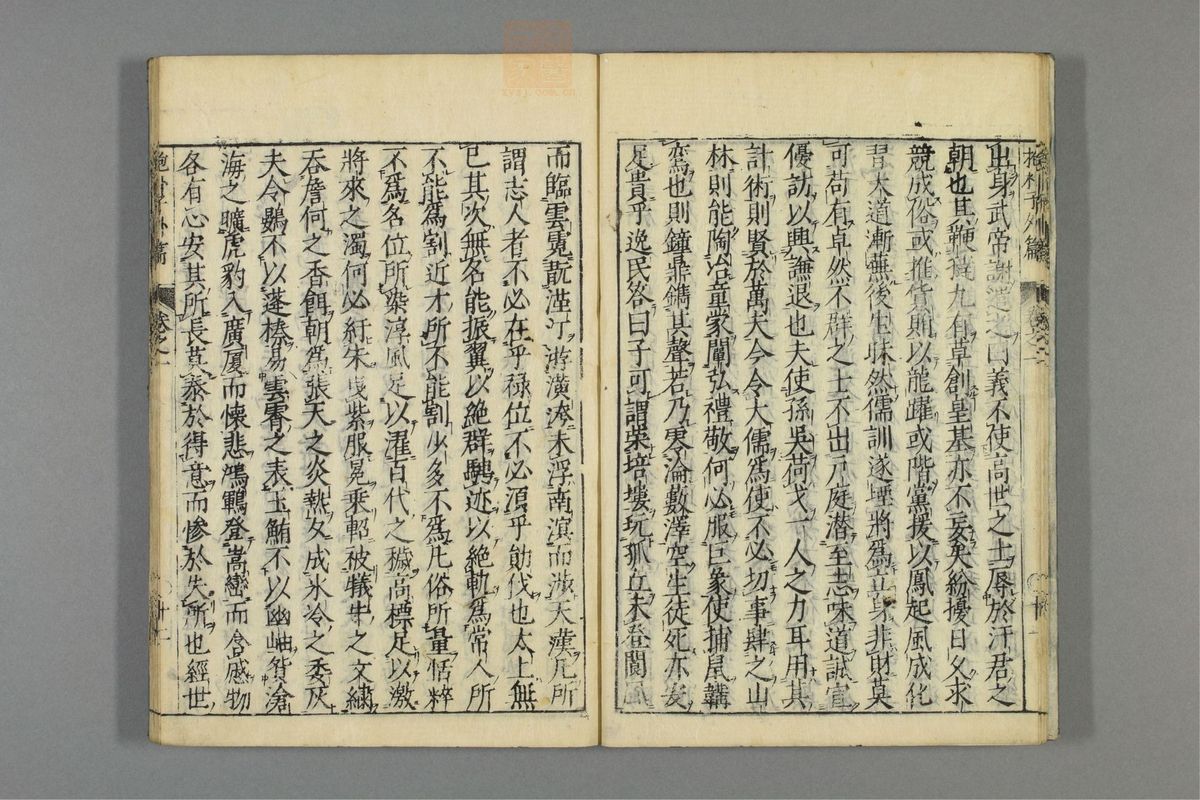 出身武帝謝遣之曰義不使高世之士辱於汙君之
朝也其鞭撻九有草創皇基亦不妄矣紛擾日久求
競成俗或推貨賄以龍躍或階黨援以鳳起風成化
習大道漸蕪後生昧然儒訓遂堙將爲立身非財莫
可苟有卓然不群之士不出戸庭潜志味道誠宜
優訪以興謙退也夫使孫吳荷戈一人之力耳用其
計術則賢於萬夫今令大儒爲使不必切事肆之山
林則能陶冶童蒙闡弘禮敬何必服巨象使捕䑕韝
鸞也則鐘鼎鐫其聲若乃零淪藪澤空生徒死亦安
足貴乎逸民答曰子可謂榮培塿玩狐丘未登閬風
而臨雲霓翫瀅汀游潢洿未浮南溟而涉天漢凡所
謂志人者不必在乎禄位不必湏乎勛伐也太上無
已其次無名能振翼以絶群騁迹以絶軌爲常人所
不能爲割近才所不能割少多不爲凡俗所量恬粹
不爲名位所染淳風足以濯百代之穢高標足以激
將來之濁何必紆朱曳紫服冕乗軺被犠牛之文繡
吞詹何之香餌朝爲張天之炎熱夕成氷冷之委灰
夫令鷃不以蓬榛易雲霄之表玉鮪不以幽岫貿滄
海之曠虎豹入廣厦而懷悲鴻鵾登嵩巒而含慼物
各有心安其所長莫泰於得意而惨於失所也經世
抱朴子外篇 卷之一